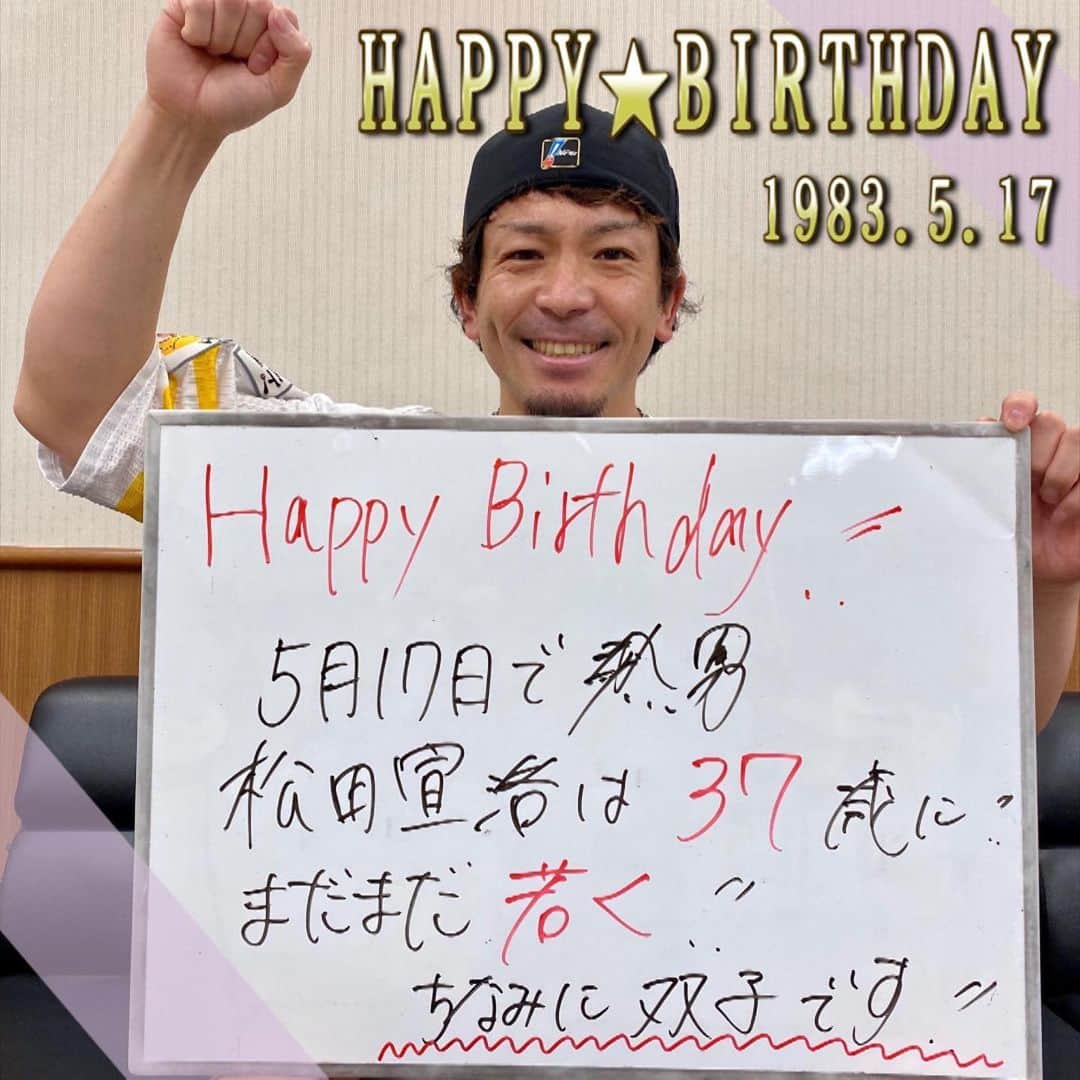 HAPPY★BIRTHDAY
1983.5.17
Happy Birthday!!
5月17日で熱男
松田宣浩は37歳に!!
まだまだ若く!!
ちなみに双子です!!